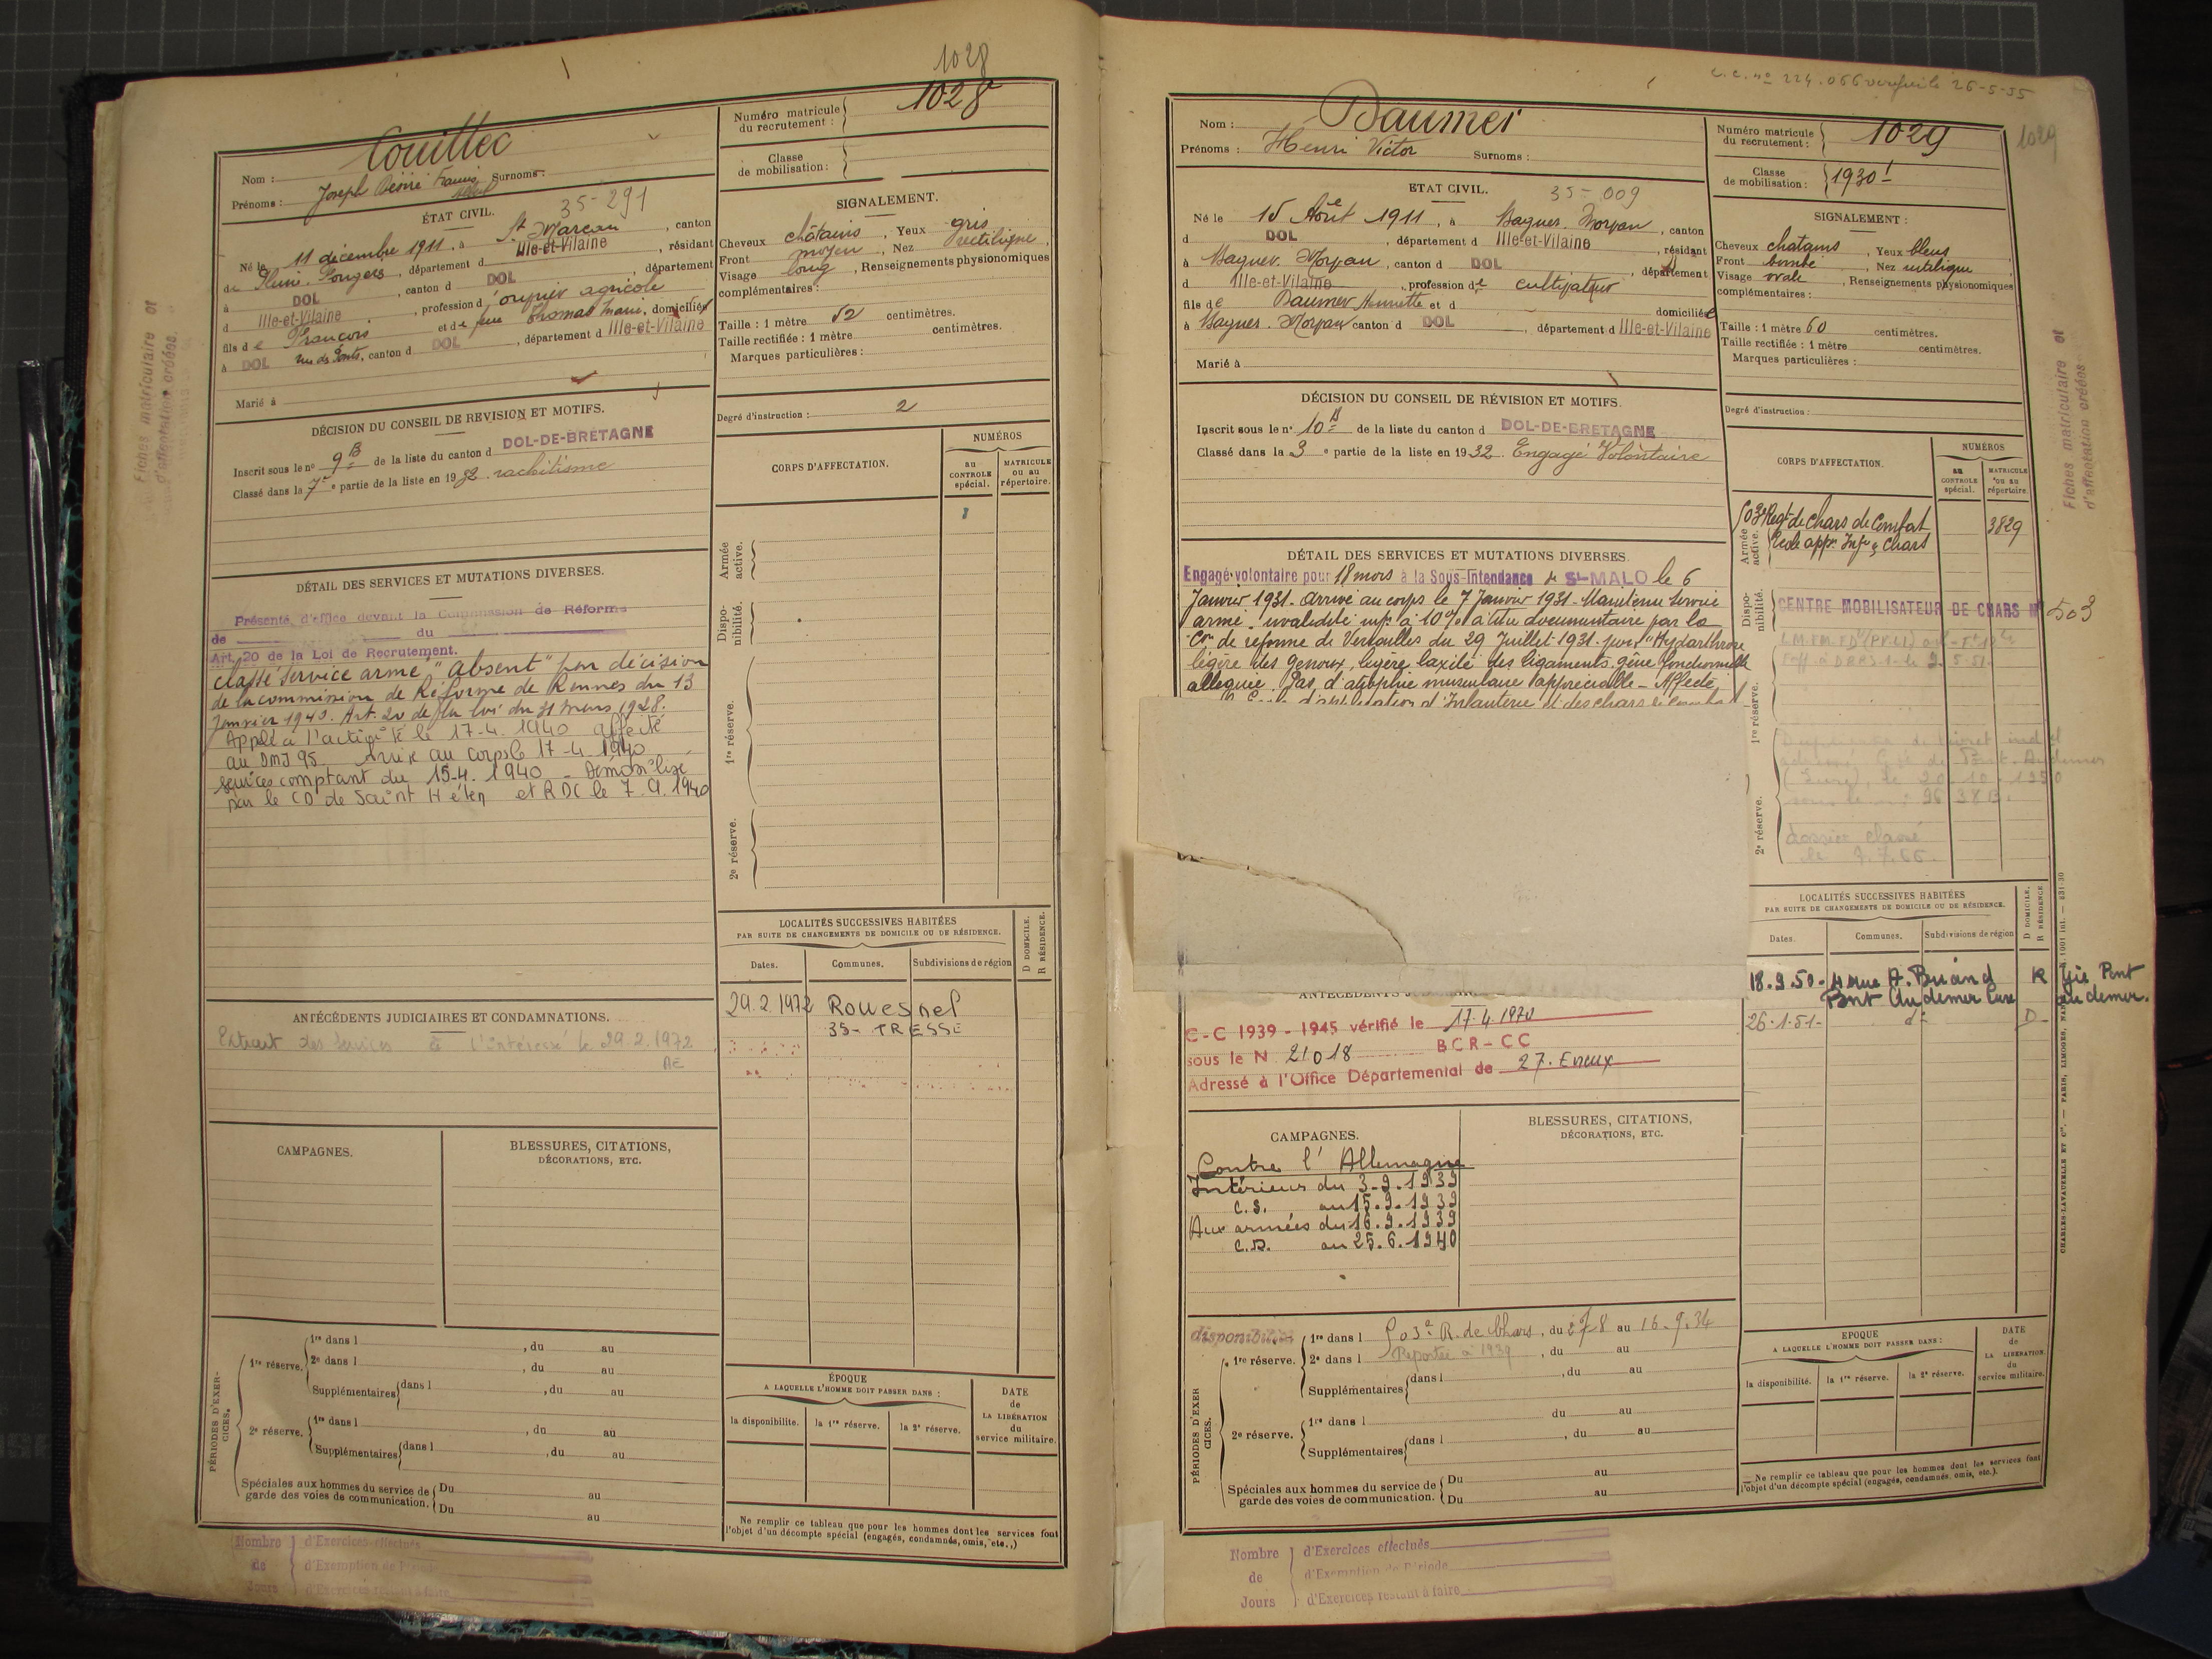 1028
Nom : Couillec
Prénoms : Joseph Désiré Francis Surnoms :
ÉTAT CIVIL. 35-291
Né le 11 décembre 1911, à St Marcan, canton
de Pleine-Fougères, département d Ille-et-Vilaine, résidant
à DOL, canton d DOL, département
d Ille-et-Vilaine, profession d'ouvrier agricole
fils de François et de feue Thomas Marie, domiciliés
à DOL rue des Ponts, canton d DOL, département d Ille-et-Vilaine
Marié à
DÉCISION DU CONSEIL DE REVISION ET MOTIFS.
Inscrit sous le no 9 B de la liste du canton d DOL-DE-BRETAGNE
Classé dans la 7e partie de la liste en 1932. rachitisme
DÉTAIL DES SERVICES ET MUTATIONS DIVERSES.
Présenté d'office devant la Commission de Réforme
de du
Art. 20 de la Loi de Recrutement.
classé service armé "Absent" par décision
de la commission de Réforme de Rennes du 13
Janvier 1940. Art. 20 de la loi du 31 mars 1928.
Appelé à l'activité le 17-4. 1940 affecté
au DMI 95 Arrivé au corps le 17-4 1940
services comptant du 15-4. 1940 - Démobilisé
par le CD de Saint Hélen et RDC le 7. 9. 1940
ANTÉCÉDENTS JUDICIAIRES ET CONDAMNATIONS.
Extrait des Services à l'intéressé le 29.2.1972
CAMPAGNES.
BLESSURES, CITATIONS,
DÉCORATIONS, ETC.
PÉRIODES D'EXERCICES.
1re réserve. 1re dans l , du au
2e dans l , du au
Supplémentaires dans l , du au
2e réserve. 1re dans l , du au
Supplémentaires dans l , du au
Spéciales aux hommes du service de garde des voies de communication. Du au
Du au
Nombre de Jours
d'Exercices effectués
d'Exemption de Période
d'Exercices restant à faire
Fiches matriculaire et
d'affectation créées.
Numéro matricule
du recrutement : 1028
Classe
de mobilisation :
SIGNALEMENT.
Cheveux châtains, Yeux gris
Front moyen, Nez rectiligne
Visage long, Renseignements physionomiques
complémentaires :
Taille : 1 mètre 52 centimètres.
Taille rectifiée : 1 mètre centimètres.
Marques particulières :
Degré d'instruction : 2
CORPS D'AFFECTATION.
NUMÉROS
au CONTROLE spécial.
MATRICULE ou au répertoire.
Armée active.
Disponibilité.
1re réserve.
2e réserve.
LOCALITÉS SUCCESSIVES HABITÉES
PAR SUITE DE CHANGEMENTS DE DOMICILE OU DE RÉSIDENCE.
Dates. Communes. Subdivisions de région
D DOMICILE. R RÉSIDENCE.
29.2.1972 Rouesnel
35- TRESSE
ÉPOQUE
A LAQUELLE L'HOMME DOIT PASSER DANS :
la disponibilité. la 1re réserve. la 2e réserve.
DATE de LA LIBÉRATION du service militaire.
Ne remplir ce tableau que pour les hommes dont les services font
l'objet d'un décompte spécial (engagés, condamnés, omis, etc.,)
C.C. no 224.066 vérifié le 26-5-55
1029
Nom : Daumer
Prénoms : Henri Victor Surnoms :
ETAT CIVIL. 35-009
Né le 15 Août 1911, à Baguer-Morvan, canton
d DOL, département d Ille-et-Vilaine, résidant
à Baguer-Morvan, canton d DOL, département
d Ille-et-Vilaine, profession de cultivateur
fils de Daumer Henriette et d domiciliée
à Baguer-Morvan canton d DOL, département d Ille-et-Vilaine
Marié à
DÉCISION DU CONSEIL DE RÉVISION ET MOTIFS.
Inscrit sous le no 10 B de la liste du canton d DOL-DE-BRETAGNE
Classé dans la 3e partie de la liste en 1932. Engagé Volontaire
DÉTAIL DES SERVICES ET MUTATIONS DIVERSES.
Engagé volontaire pour 18 mois à la Sous-Intendance de St-MALO le 6
Janvier 1931. Arrivé au corps le 7 Janvier 1931. Maintenu Service
armé. invalidité inf. à 10% à titre documentaire par la
Con de réforme de Versailles du 29 Juillet 1931. pour "Hydarthrose
légère des genoux, légère laxité des ligaments. gêne fonctionnelle
alléguée. Pas d'atrophie musculaire appréciable - Affecté
d'application d'Infanterie et des chars de Combat
ANTÉCÉDENTS
C-C 1939 - 1945 vérifié le 17.4.1970
sous le N 21018 BCR-CC
Adressé à l'Office Départemental de 27. Evreux
CAMPAGNES.
Contre l'Allemagne
Intérieur du 3.9.1939
C.S. au 15.9.1939
Aux armées du 16.9.1939
C.D. au 25.6.1940
BLESSURES, CITATIONS,
DÉCORATIONS, ETC.
PÉRIODES D'EXERCICES.
disponibilité 1re dans l 503e R. de Chars, du 27 8 au 16.9.34
1re réserve. 2e dans l Reportée à 1939, du au
Supplémentaires dans l , du au
2e réserve. 1re dans l du au
Supplémentaires dans l , du au
Spéciales aux hommes du service de garde des voies de communication. Du au
Du au
Nombre de Jours
d'Exercices effectués
d'Exemption de Période
d'Exercices restant à faire
Numéro matricule
du recrutement : 1029
1029
Classe
de mobilisation : 1930 1
SIGNALEMENT :
Cheveux chatains, Yeux bleus
Front bombé, Nez rectiligne
Visage ovale, Renseignements physionomiques
complémentaires :
Taille : 1 mètre 60 centimètres.
Taille rectifiée : 1 mètre centimètres.
Marques particulières :
Degré d'instruction :
CORPS D'AFFECTATION.
NUMÉROS
au CONTROLE spécial.
MATRICULE ou au répertoire.
Armée active.
503e Regt de Chars de Combat 3829
Ecole appon Infie & Chars
Disponibilité.
CENTRE MOBILISATEUR DE CHARS No 503
1re réserve.
Duplicata de livret ind el
adressé Gie de Pont-Audemer
(Eure), le 20.10.1950
2e réserve.
dossier classé
le 7.7.66.
LOCALITÉS SUCCESSIVES HABITÉES
PAR SUITE DE CHANGEMENTS DE DOMICILE OU DE RÉSIDENCE.
Dates. Communes. Subdivisions de région
D DOMICILE. R RÉSIDENCE
18.9.50 - 4 rue A. Briand R Gie Pont
Pont Audemer Eure Audemer.
26.1.51- do D-
EPOQUE
A LAQUELLE L'HOMME DOIT PASSER DANS :
la disponibilité. la 1re réserve. la 2e réserve.
DATE de LA LIBERATION du service militaire.
Ne remplir ce tableau que pour les hommes dont les services font
l'objet d'un décompte spécial (engagés, condamnés, omis, etc.).
Fiches matriculaire et
d'affectation créées